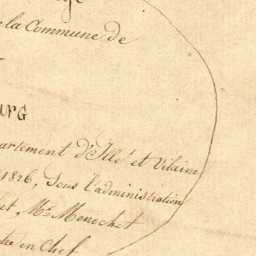 la Commune de
urg
artement d'Ille et Vilaine
1816, Sous l'administration
et, Mr Menochet
en Chef